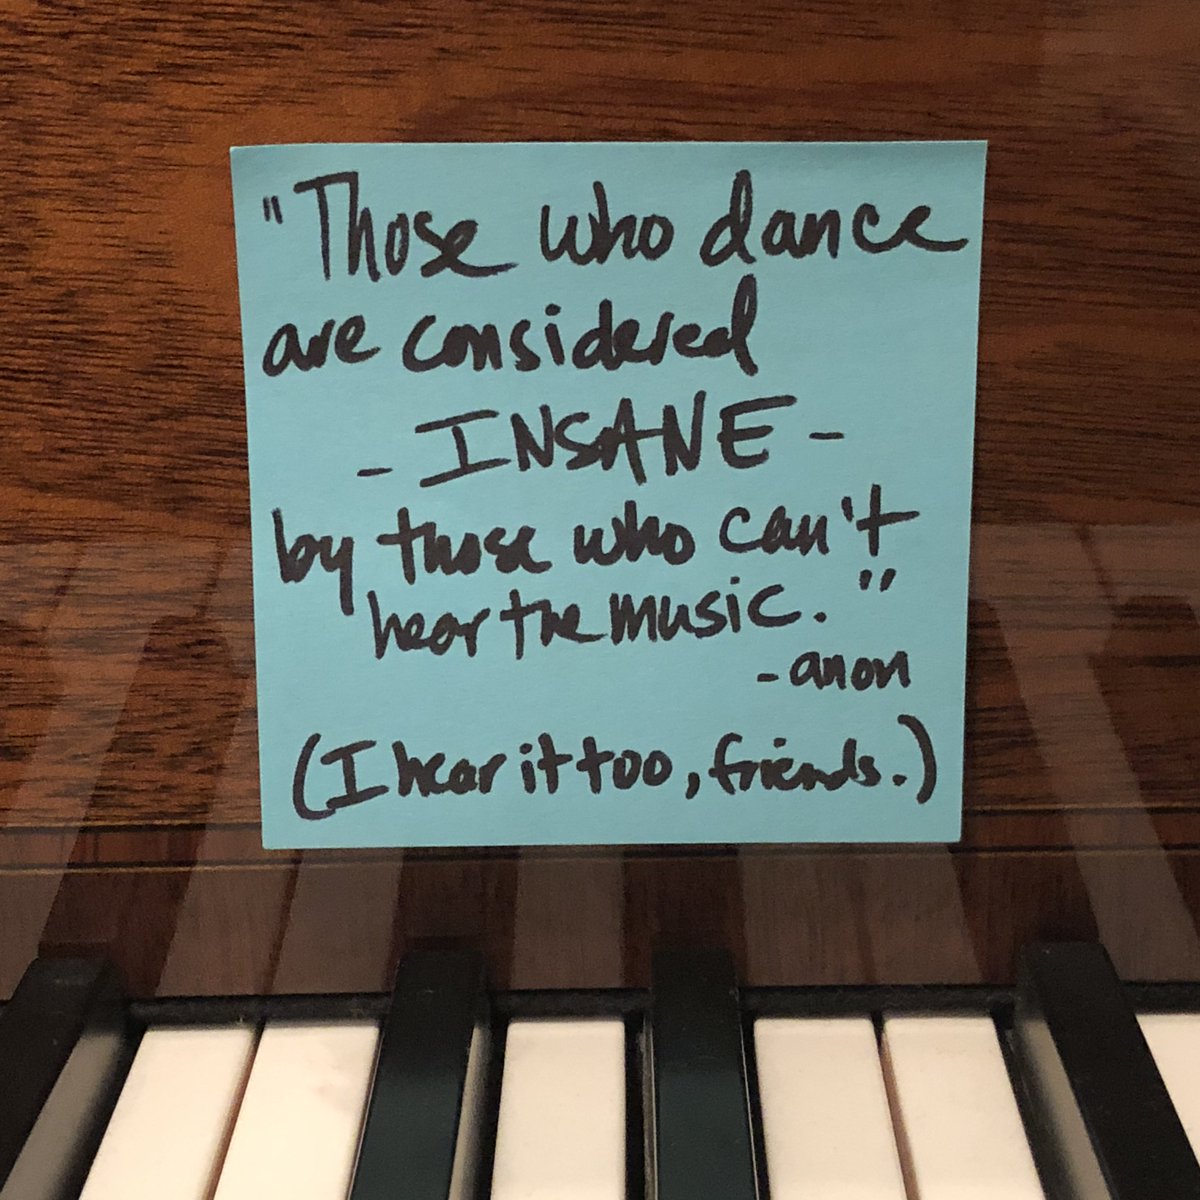 "Those who dance
are considered
- INSANE -
by those who can't
hear the music."
- anon
(I hear it too, friends.)